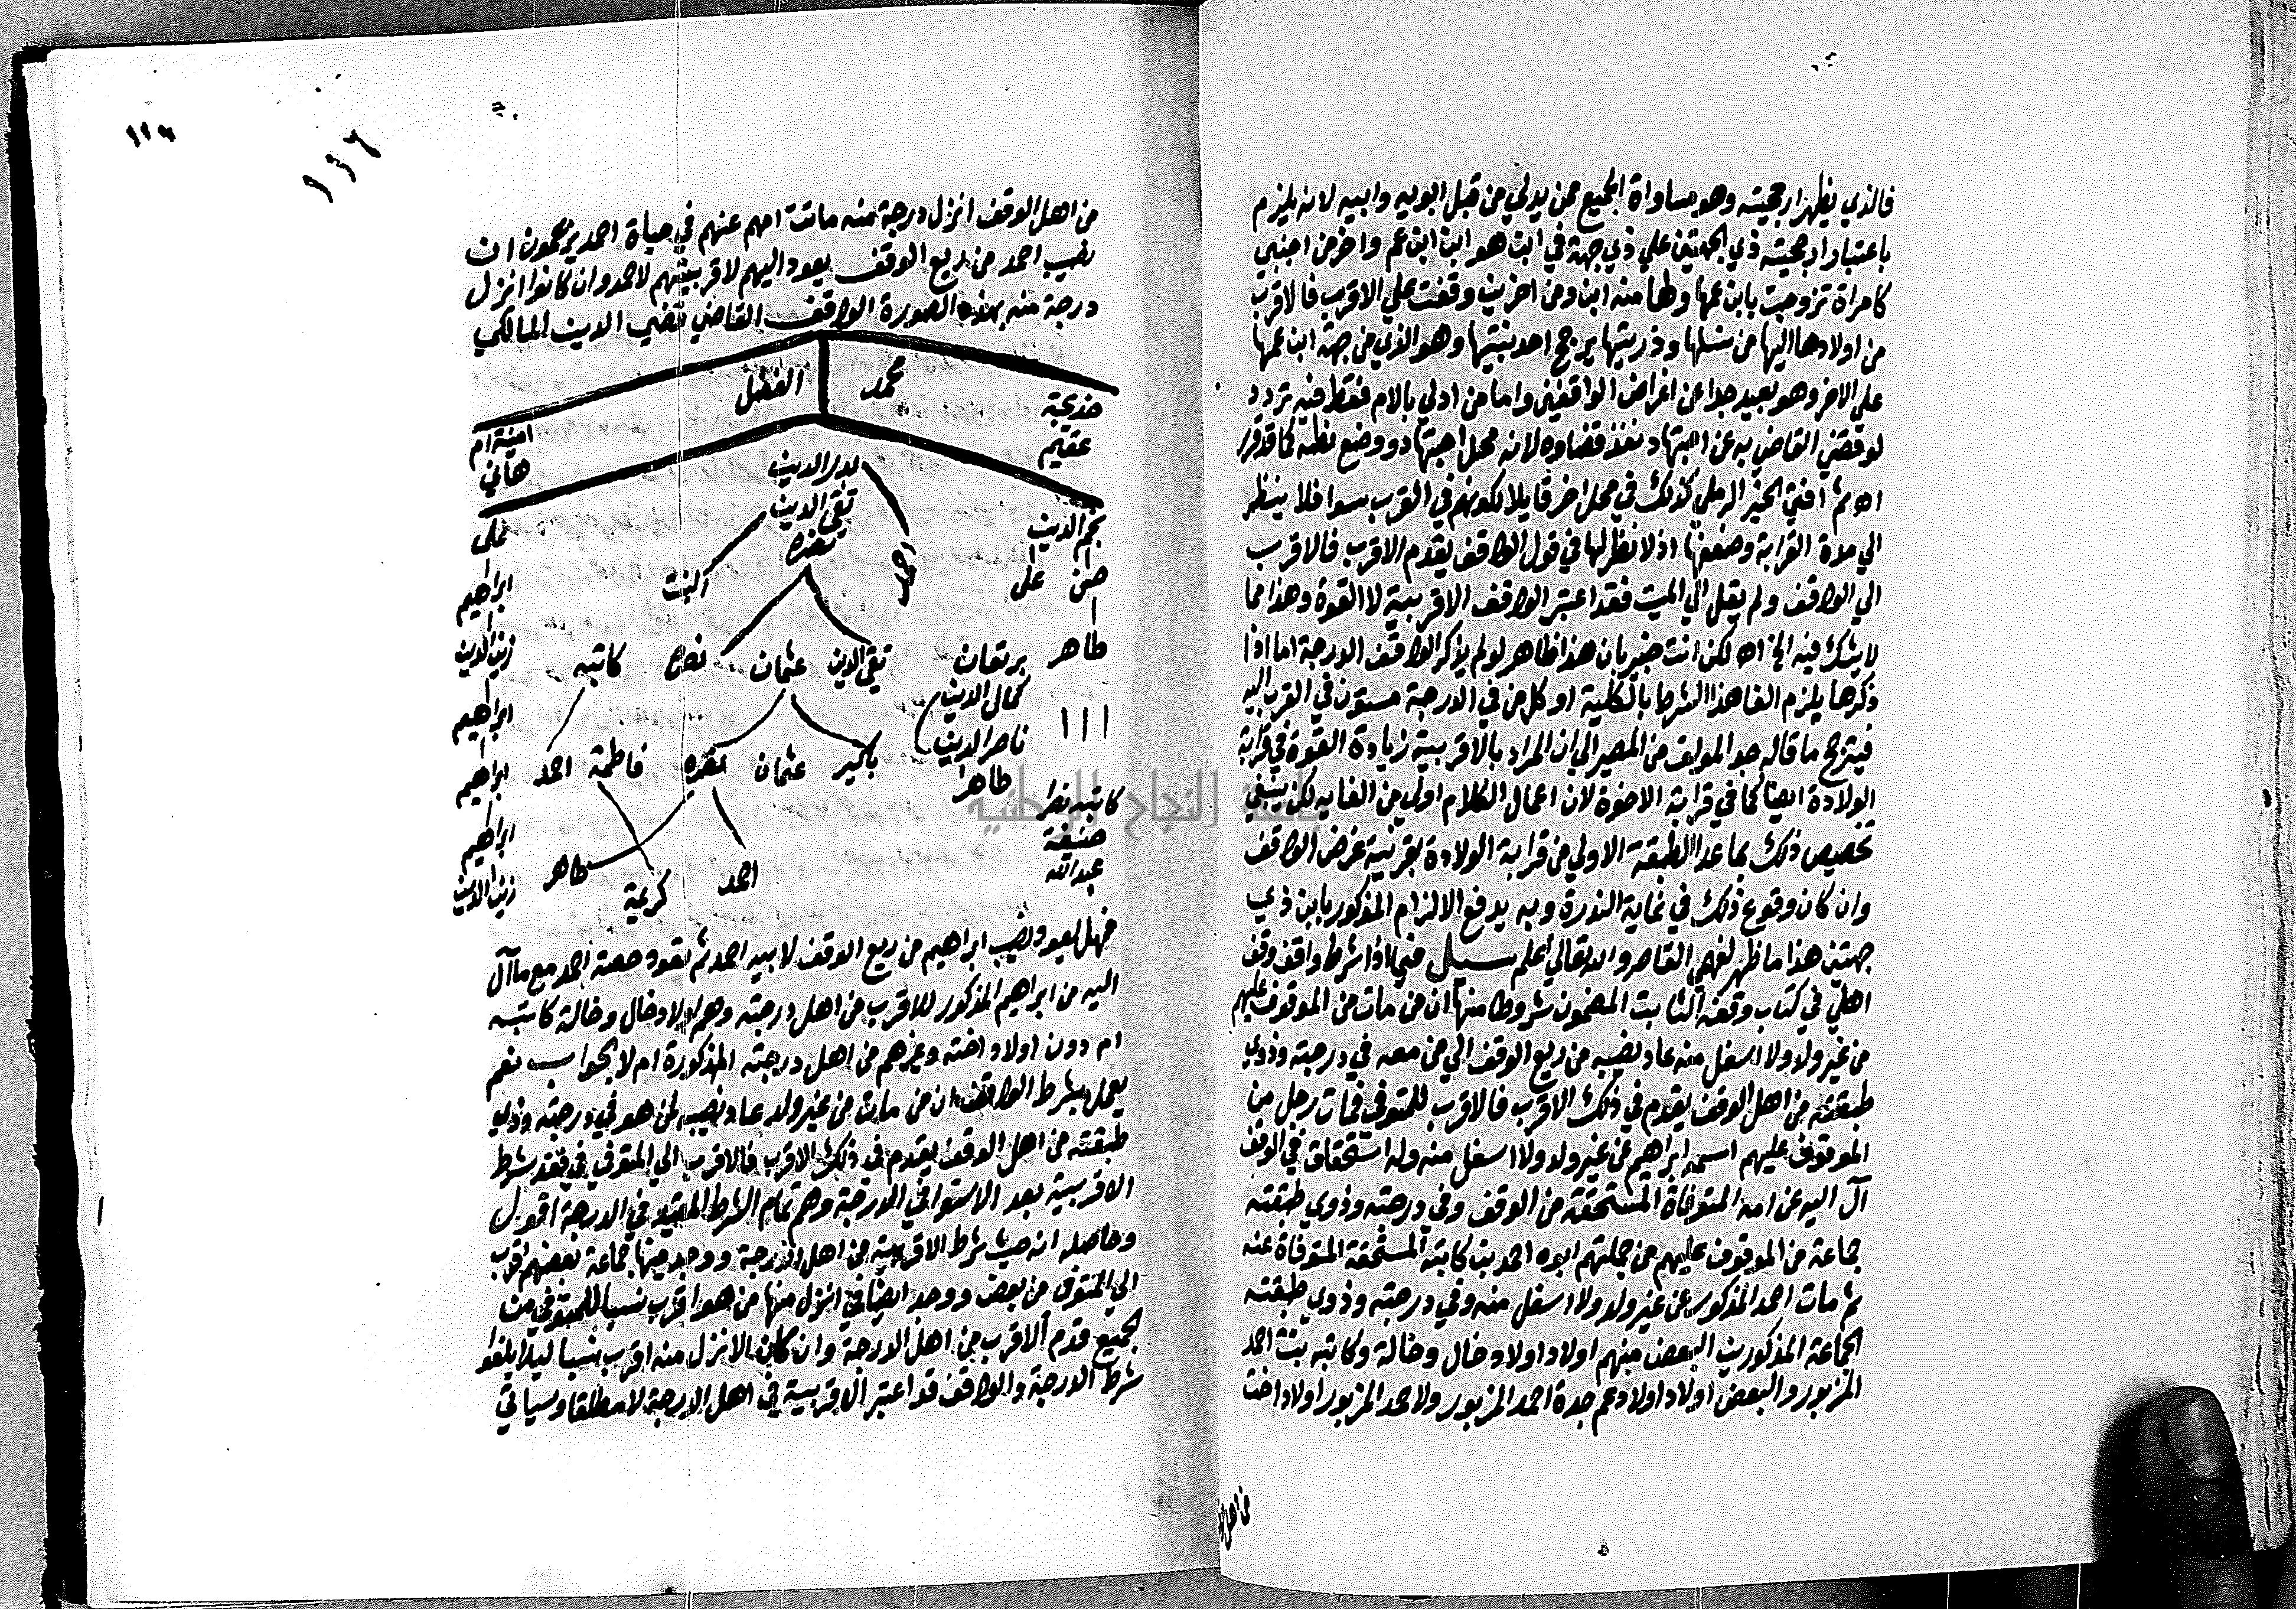 فالذي يظهر ارجحيته وهو مساواة الجميع ممن يدلي من قبل ابويه وابيه لانه يلزم
باعتبار ارجحيته ذي الجهتين علي ذي جهة في ابن هو ابن ابن عم واخر من اجنبي
كامراة تزوجت بابن عمها ولها منه ابن ومن اخر بنت وقفت علي الاقرب فالاقرب
من اولادها اليها من نسلها وذريتها يرجح احد بنتيها وهو الذي من جهة ابن عمها
علي الاخر وهو بعيد جدا عن اغراض الواقفين واما من ادلي بالام فقط ففيه تردد
لو قضي القاضي به عن اجتهاد نفذ قضاوه لانه محل اجتهاد ووضع نظر كما قد قرر
اه ثم افتي الخير الرملي كذلك في محل اخر قايلا لكونهم في القرب سوا فلا ينظر
الي مدة القرابة وضعفها اذ لا نظر لها في قول الواقف يقدم الاقرب فالاقرب
الي الواقف ولم يقل الي الميت فقد اعتبر الواقف الاقربية لا القوة وهذا مما
لا يشك فيه الخ اه لكن انت خبير بان هذا ظاهر لو لم يذكر الواقف الدرجة اما اذا
ذكرها يلزم الغا هذا الشرط بالكلية اذ كل من في الدرجة مستوون في القرب اليه
فيترجح ما قاله جد المولف من المصير الي ان المراد بالاقربية زيادة القوة في قرابة
الولادة ايضا كما في قرابة الاخوة لان اعمال الكلام اولي من الغايه لكن ينبغي
تخصيص ذلك بما عدا الطبقة الاولي من قرابة الولادة بقرينة غرض الواقف
وان كان وقوع ذلك في غاية الندرة وبه يدفع الالزام المذكور بابن ذي
جهتين هذا ما ظهر لفهمي القاصر والله تعالي اعلم سيل فيما اذا شرط واقف وقف
اهلي في كتاب وقفه الثابت المضمون شروطا منها ان من مات من الموقوف عليهم
من غير ولد ولا اسفل منه عاد نصيبه من ريع الوقف الي من معه في درجته وذوي
طبقته من اهل الوقف يقدم في ذلك الاقرب فالاقرب للمتوفي فمات رجل من
الموقوف عليهم اسمه ابراهيم عن غير ولد ولا اسفل منه وله استحقاق في الوقف
آل اليه عن امه المتوفاة المستحقة من الوقف وفي درجته وذوي طبقته
جماعة من الموقوف عليهم من جملتهم ابوه احمد بن كاتبة المستحقة المتوفاة عنه
ثم مات احمد المذكور عن غير ولد ولا اسفل منه وفي درجته وذوي طبقته
الجماعة المذكورين البعض منهم اولاد اولاد خال وخالة وكاتبه بنت احمد
المزبور والبعض اولاد اولاد عم جدة احمد المزبور ولاحمد المزبور اولاد اخت
من اهل
١١٧
١٣٦
من اهل الوقف انزل درجة منه ماتت امهم عنهم في حياة احمد يزعمون ان
نصيب احمد من ريع الوقف يعود اليهم لاقربيتهم لاحمد وان كانوا انزل
درجة منه بهذه الصورة الواقف القاضي تقي الدين المالكي
خديجة محمد الفضل امينة ام
عقيم هاني
نجم الدين بدر الدين علي
تقي الدين
حسن علي احمد البنت ابراهيم
طاهر بريقان تقي الدين عثمان كاتبه زين الدين
كمال الدين ابراهيم
ناصر الدين باكير عثمان فاطمة احمد ابراهيم
طاهر
حنيفة ابراهيم
عبد الله احمد كريمة طاهر زين الدين
فهل يعود نصيب ابراهيم من ريع الوقف لابيه احمد ثم تعود حصة احمد مع ما آل
اليه من ابراهيم المذكور للاقرب من اهل درجته وهم اولاد خال وخالة كاتبه
ام دون اولاد اخته وغيرهم من اهل درجته المذكورة ام لا الجواب نعم
يعمل بشرط الواقف ان من مات من غير ولد عاد نصيبه لمن هو في درجته وذوي
طبقته من اهل الوقف يقدم في ذلك الاقرب فالاقرب الي المتوفي فقد شرط
الاقربية بعد الاستوا في الدرجة وهم تمام الشرط المقيد في الدرجة اقول
وحاصله انه حيث شرط الاقربية من اهل الدرجة ووجد فيها جماعة بعضهم اقرب
الي المتوفي من بعض ووجد ايضا في انزل منها من هو اقرب نسبا للمتوفي من
الجميع قدم الاقرب من اهل الدرجة وان كان الانزل منه اقرب نسبا ليلا يلغو
شرط الدرجة والواقف قد اعتبر الاقربية في اهل الدرجة لا مطلقا وسياتي
جامعة النجاح الوطنية